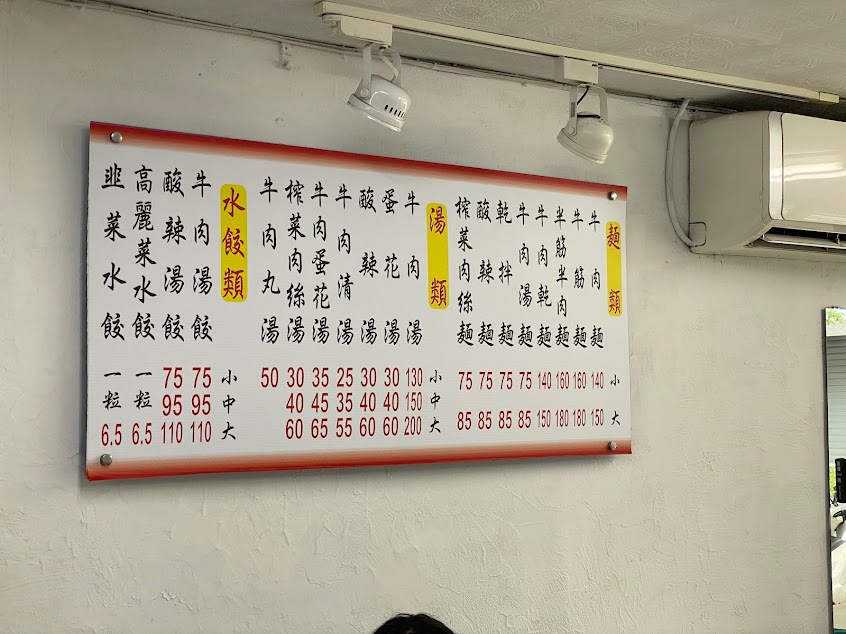 麵類
小 大
牛肉麵 140 150
牛筋麵 160 180
半筋半肉麵 160 180
牛肉乾麵 140 150
牛肉湯麵 75 85
乾拌麵 75 85
酸辣麵 75 85
榨菜肉絲麵 75 85
湯類
小 中 大
牛肉湯 130 150 200
蛋花湯 30 40 60
酸辣湯 30 40 60
牛肉清湯 25 35 55
牛肉蛋花湯 35 45 65
榨菜肉絲湯 30 40 60
牛肉丸湯 50
水餃類
小 中 大
牛肉湯餃 75 95 110
酸辣湯餃 75 95 110
高麗菜水餃 一粒 6.5
韮菜水餃 一粒 6.5